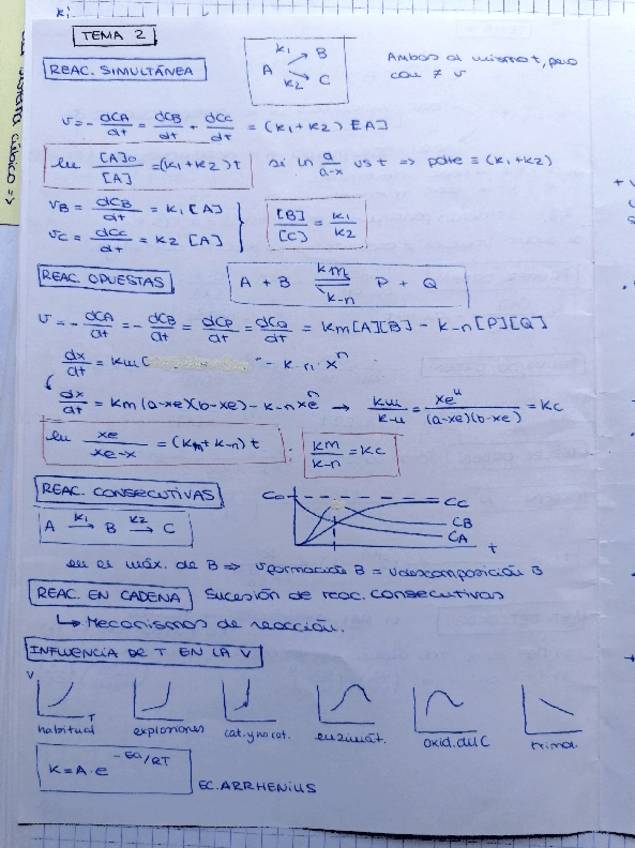 TEMA 2
REAC. SIMULTÁNEA
A k1 → B
k2 → C
Ambos al mismo t, pero
con ≠ v
v = - dCA/dt = dCB/dt + dCC/dt = (k1+k2) [A]
ln [A]o/[A] = (k1+k2)t si ln a/a-x vs t => pdte = (k1+k2)
vB = dCB/dt = k1 [A]
vC = dCC/dt = k2 [A]
[B]/[C] = k1/k2
REAC. OPUESTAS
A + B km ⇌ k-n P + Q
v = - dCA/dt = - dCB/dt = dCP/dt = dCQ/dt = km[A][B] - k-n[P][Q]
dx/dt = km( - k-n · x^n
dx/dt = km(a-xe)(b-xe) - k-n xe^n → km/k-n = xe^n/(a-xe)(b-xe) = Kc
ln xe/xe-x = (km+k-n)t ; km/k-n = Kc
REAC. CONSECUTIVAS
A k1 → B k2 → C
Co
CC
CB
CA
t
en el máx. de B => vformación B = vdescomposición B
REAC. EN CADENA Sucesión de reac. consecutivas
↳ Mecanismos de reacción.
INFLUENCIA DE T EN LA V
V
T
habitual explosiones cat. y no cat. enzimát. oxid. del C trimol.
K = A · e^-Ea/RT
EC. ARRHENIUS